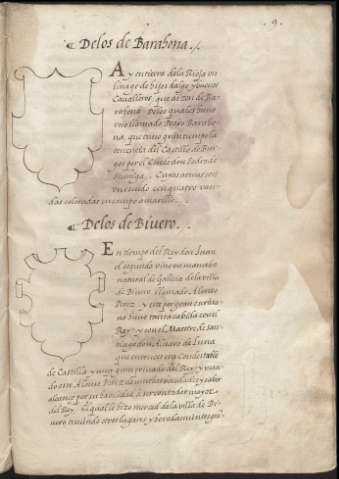 9.
De los de Barahona.
Ay en tierra de la Rioja un
linage de hijos dalgo y buenos
Caualleros, que se dizen de Ba-
rahona. Delos quales huuo
uno llamado Pedro Baraho-
na, que tuuo gran tiempo la
tenencia del Castillo de Bur-
gos por el Conde don
Cuyas armas son
un escudo con quatro van-
das coloradas en campo amarillo.
De los de Biuero.
En tiempo del Rey don Juan
el segundo vino un mancebo
natural de Gallizia de la villa
de Biuero llamado Alonso
Perez, y este por gran
huuo mucha cabida con el
Rey y con el Maestre de San-
tiago don Aluaro de Luna
que entonces era Condestable
de Castilla y muy gran priuado del Rey, y
este Alonso Perez
alcanço por su a ser contador mayor
del Rey. El qual le hizo merced de la villa de Bi-
uero con otros lugares y heredamientos